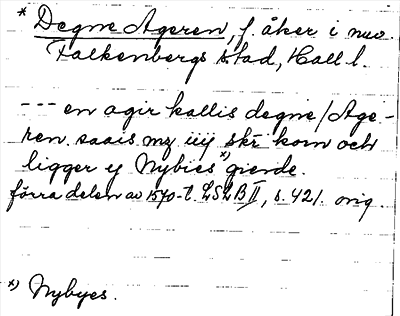 * Degne Ageren, f. åker i nuv.
Falkenbergs stad, Hall l.
--- en agir kallis degne/Age-
ren. saais mz iiij skr korn och
ligger ij Nybies x) gierde.
förra delen av 1570-t. LSLB II, s. 421. orig.
x) Nybyes.